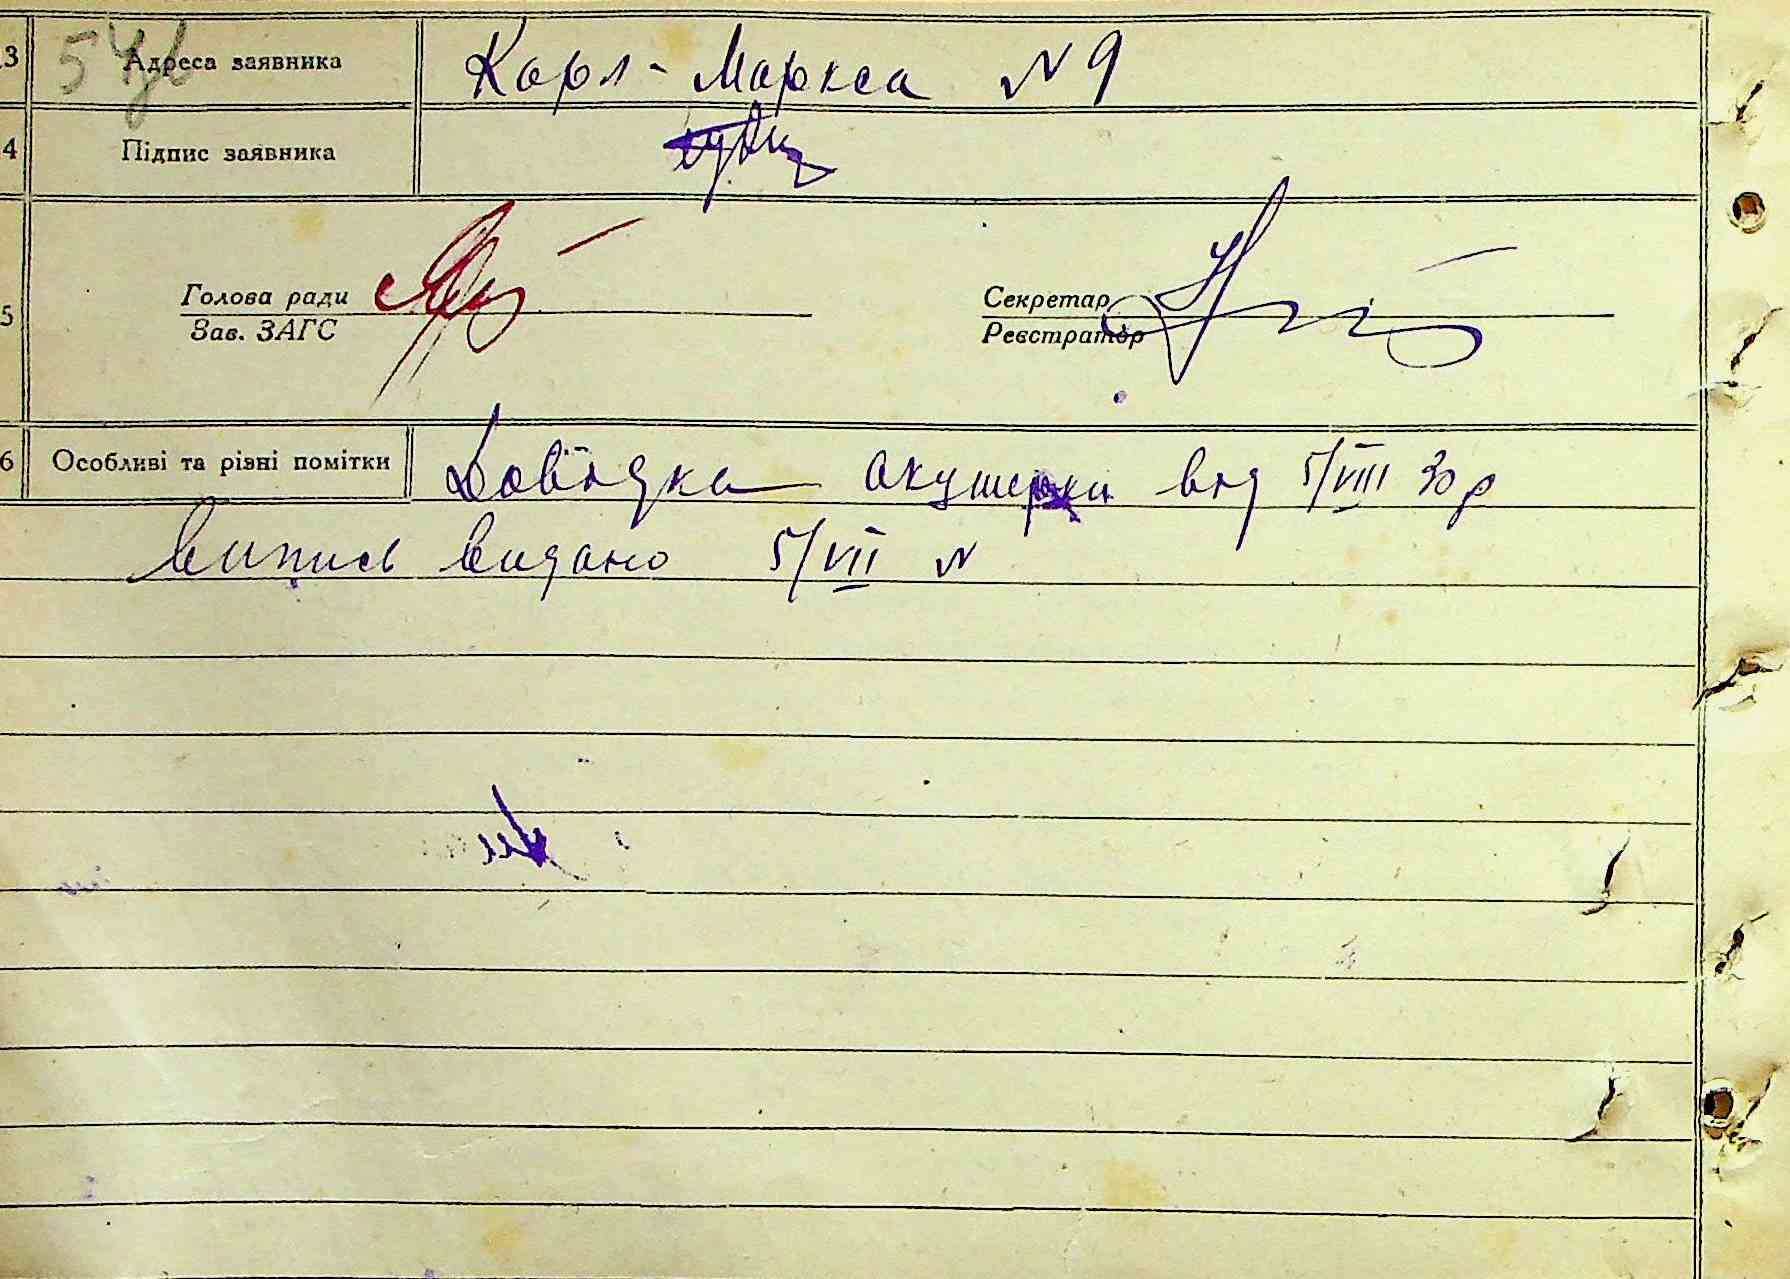 3 Адреса заявника Карл-Маркса N 9
4 Підпис заявника
5
Голова ради Секретар
Зав. ЗАГС Реєстратор
6 Особливі та різні помітки Довідка акушерки від 5/VIII 30 р
Випись видано 5/VII N